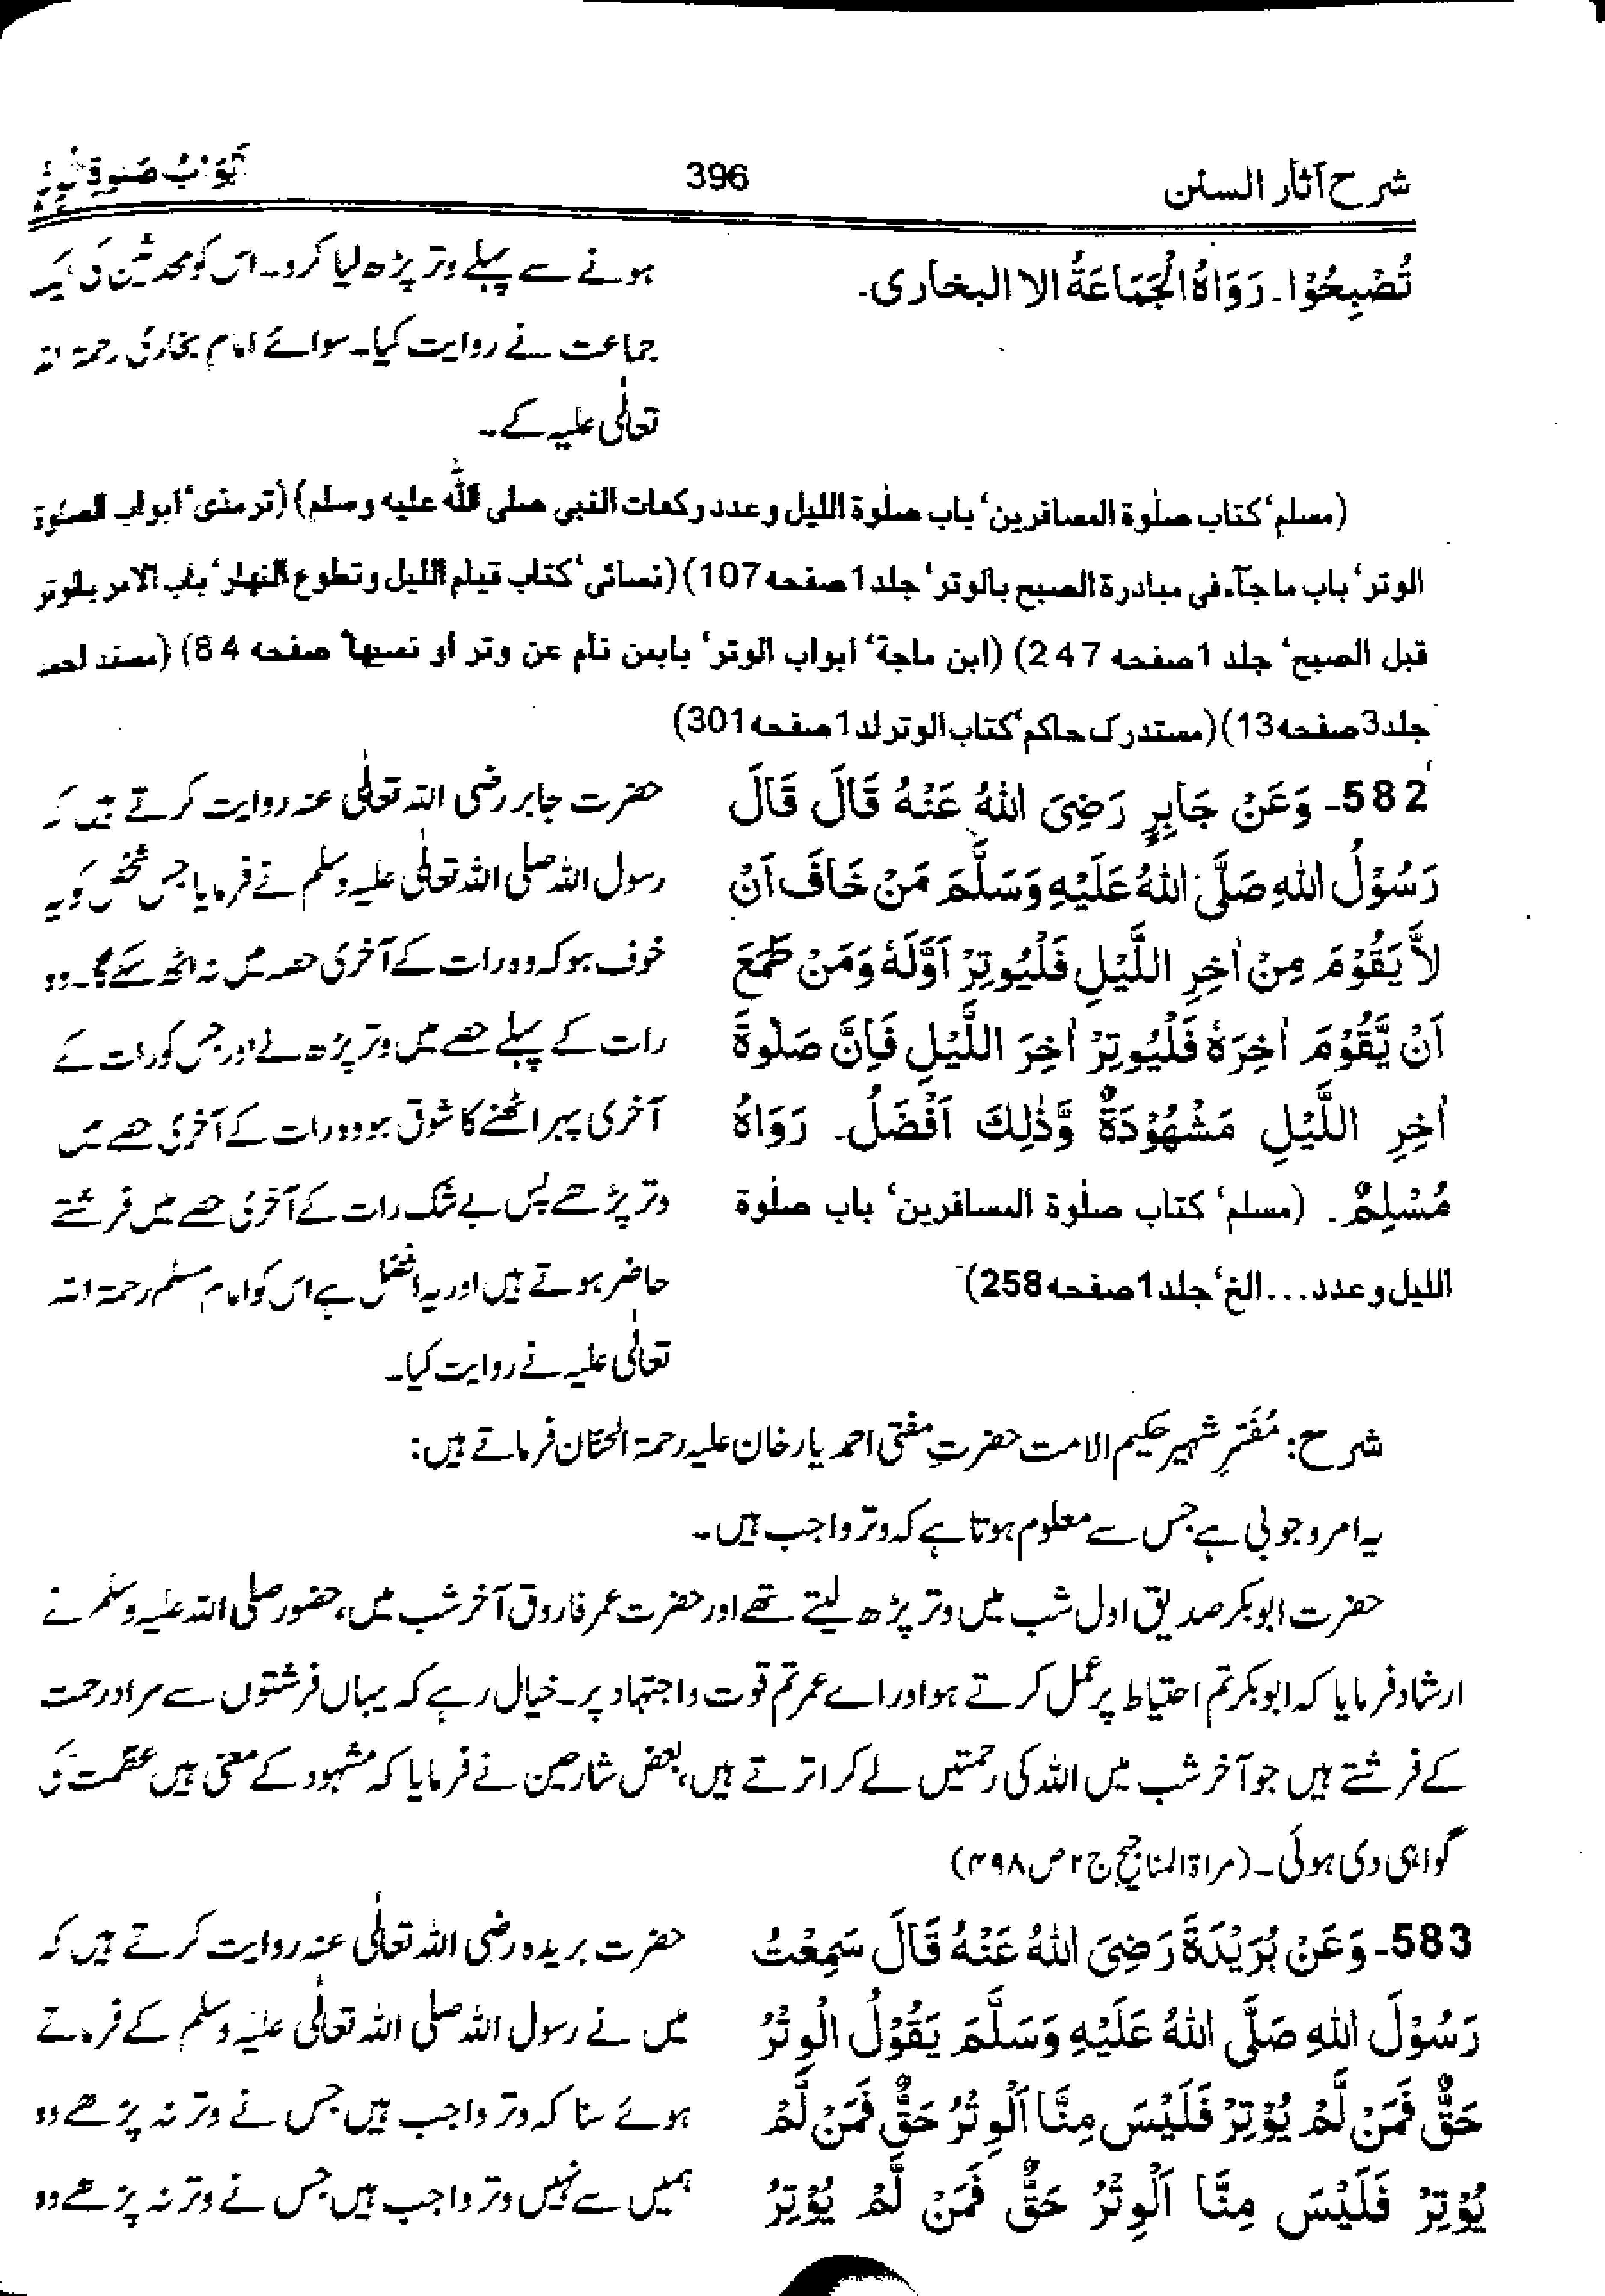 شرح آثار السنن
396
اَبْوَابُ صَلٰوةِ الْوِتْرِ
تُصْبِحُوْا۔ رَوَاهُ الْجَمَاعَةُ الا البخاری۔
ہونے سے پہلے وتر پڑھ لیا کرو۔ اس کو محدثین کی ایک
جماعت نے روایت کیا۔ سوائے امام بخاری رحمۃ اللہ
تعالٰی علیہ کے۔
(مسلم‘ کتاب صلٰوة المسافرین‘ باب صلٰوة اللیل و عدد رکعات النبی صلی اللّٰه علیه وسلم) (ترمذی‘ ابواب الصلٰوة
الوتر‘ باب ما جآء فی مبادرة الصبح بالوتر‘ جلد 1 صفحه 107) (نسائی‘ کتاب قیام اللیل و تطوع النهار‘ باب الامر بالوتر
قبل الصبح‘ جلد 1 صفحه 247) (ابن ماجة‘ ابواب الوتر‘ باب من نام عن وتر او نسیها‘ صفحه 84) (مسند احمد
جلد 3 صفحه 13) (مستدرک حاکم‘ کتاب الوتر لد 1 صفحه 301)
582۔ وَعَنْ جَابِرٍ رَضِیَ اللهُ عَنْهُ قَالَ قَالَ
رَسُوْلُ اللهِ صَلَّی اللهُ عَلَیْهِ وَسَلَّمَ مَنْ خَافَ اَنْ
لَّا یَقُوْمَ مِنْ اٰخِرِ اللَّیْلِ فَلْیُوتِرْ اَوَّلَهٗ وَمَنْ طَمَعَ
اَنْ یَّقُوْمَ اٰخِرَهٗ فَلْیُوتِرْ اٰخِرَ اللَّیْلِ فَاِنَّ صَلٰوةَ
اٰخِرِ اللَّیْلِ مَشْهُوْدَةٌ وَّذٰلِكَ اَفْضَلُ۔ رَوَاهُ
مُسْلِمٌ۔ (مسلم‘ کتاب صلٰوة المسافرین‘ باب صلٰوة
اللیل و عدد... الخ‘ جلد 1 صفحه 258)
حضرت جابر رضی اللہ تعالٰی عنہ روایت کرتے ہیں کہ
رسول اللہ صلی اللہ تعالٰی علیہ وسلم نے فرمایا جس شخص کو یہ
خوف ہو کہ وہ رات کے آخری حصہ میں نہ اٹھ سکے گا۔ وہ
رات کے پہلے حصے میں وتر پڑھ لے اور جس کو رات کے
آخری پہر اٹھنے کا شوق ہو وہ رات کے آخری حصے میں
وتر پڑھے پس بے شک رات کے آخری حصے میں فرشتے
حاضر ہوتے ہیں اور یہ افضل ہے اس کو امام مسلم رحمۃ اللہ
تعالٰی علیہ نے روایت کیا۔
شرح: مُفَسِّرِ شہیر حکیم الامت حضرتِ مفتی احمد یار خان علیہ رحمۃ الحنّان فرماتے ہیں:
یہ امر وجوبی ہے جس سے معلوم ہوتا ہے کہ وتر واجب ہیں۔
حضرت ابوبکر صدیق اول شب میں وتر پڑھ لیتے تھے اور حضرت عمر فاروق آخر شب میں، حضور صلی اللہ علیہ وسلم نے
ارشاد فرمایا کہ ابوبکر تم احتیاط پر عمل کرتے ہو اور اے عمر تم قوت و اجتہاد پر۔ خیال رہے کہ یہاں فرشتوں سے مراد رحمت
کے فرشتے ہیں جو آخر شب میں اللہ کی رحمتیں لے کر اترتے ہیں، بعض شارحین نے فرمایا کہ مشہود کے معنی ہیں عظمت کی
گواہی دی ہوئی۔ (مراۃ المناجیح ج ۲ ص ۴۹۸)
583۔ وَعَنْ بُرَیْدَةَ رَضِیَ اللهُ عَنْهُ قَالَ سَمِعْتُ
رَسُوْلَ اللهِ صَلَّی اللهُ عَلَیْهِ وَسَلَّمَ یَقُوْلُ الْوِتْرُ
حَقٌّ فَمَنْ لَّمْ یُوْتِرْ فَلَیْسَ مِنَّا اَلْوِتْرُ حَقٌّ فَمَنْ لَّمْ
یُوْتِرْ فَلَیْسَ مِنَّا اَلْوِتْرُ حَقٌّ فَمَنْ لَّمْ یُوْتِرْ
حضرت بریدہ رضی اللہ تعالٰی عنہ روایت کرتے ہیں کہ
میں نے رسول اللہ صلی اللہ تعالٰی علیہ وسلم کے فرماتے
ہوئے سنا کہ وتر واجب ہیں جس نے وتر نہ پڑھے وہ
ہمیں سے نہیں وتر واجب ہیں جس نے وتر نہ پڑھے وہ